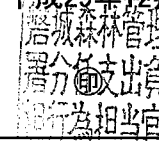 磐城森林管理
署分任支出負
担行為担当官